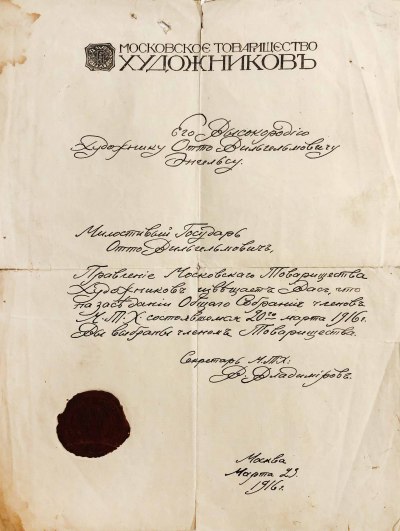 МОСКОВСКОЕ ТОВАРИЩЕСТВО
ХУДОЖНИКОВЪ
Его Высокородію
Художнику Отто Вильгельмовичу
Энгельсу.
Милостивый Государь
Отто Вильгельмовичъ,
Правленіе Московскаго Товарищества
Художниковъ извѣщаетъ Васъ, что
на засѣданіи Общаго Собранія членовъ
М.Т.Х. состоявшемся 20го марта 1916г.
Вы выбраны членомъ Товарищества.
Секретарь М.Т.Х.
В. Владиміровъ.
Москва
Марта 23
1916г.